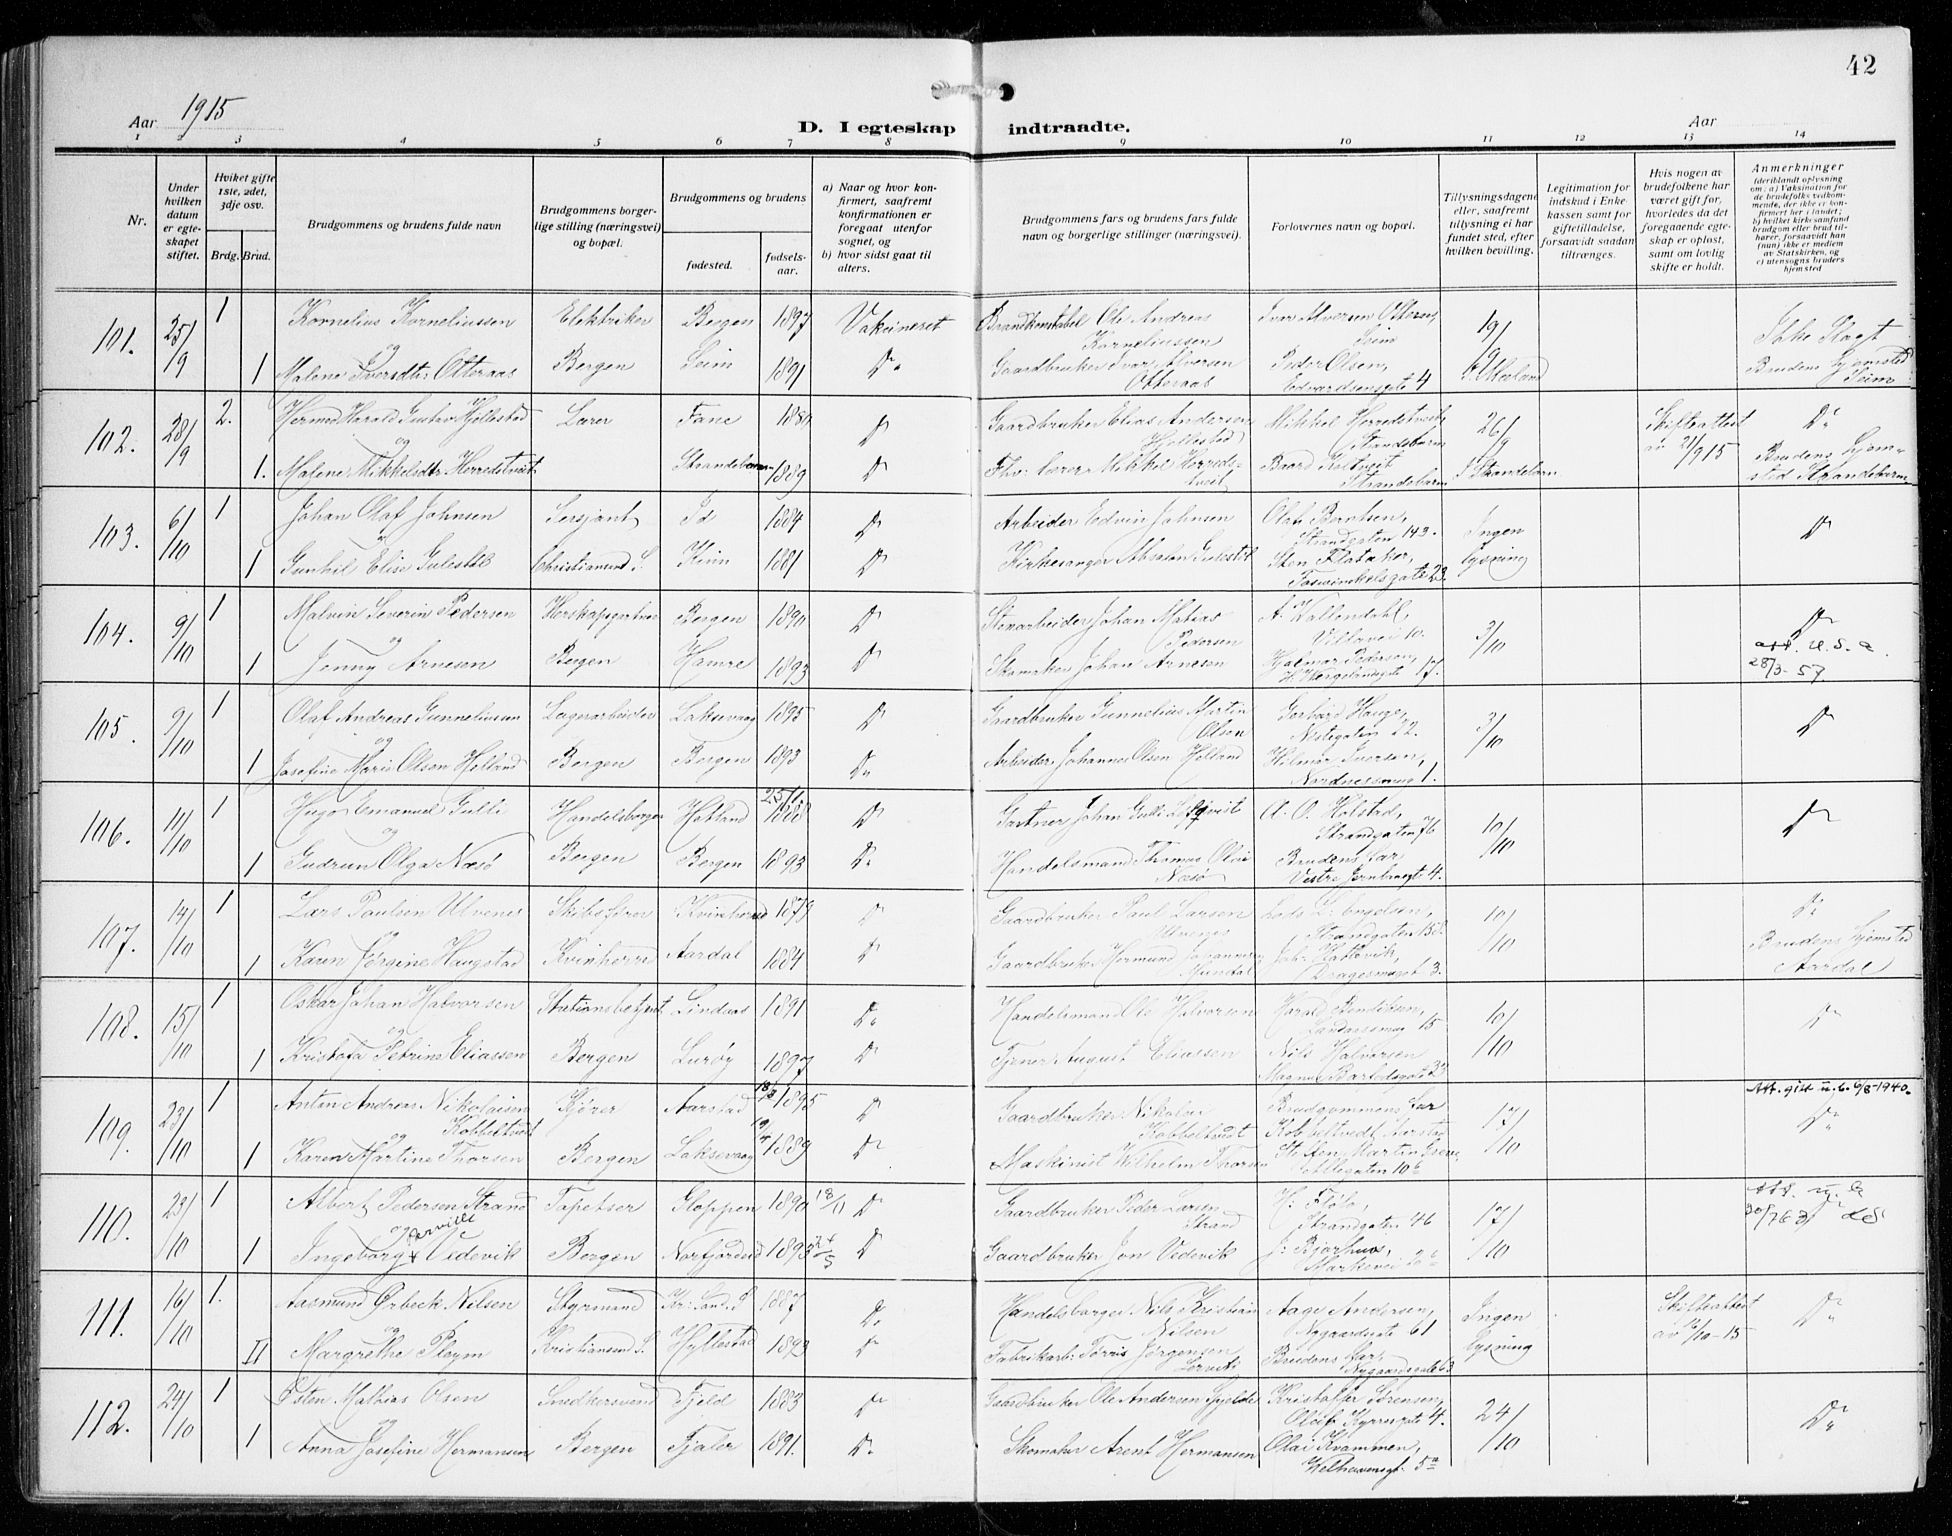 42
Aar 1915
D. I egteskap indtraadte.
Aar
1 2 3 4 5 6 7 8 9 10 11 12 13 14
Nr.
Under hvilken datum er egteskapet stiftet.
Hviket gifte 1ste, 2det, 3dje osv.
Brdg. Brud.
Brudgommens og brudens fulde navn
Brudgommens borgerlige stilling (næringsvei) og bopæl.
Brudgommens og brudens
fødested.
fødselsaar.
a) Naar og hvor konfirmert, saafremt konfirmationen er foregaat utenfor sognet, og
b) hvor sidst gaat til alters.
Brudgommens fars og brudens fars fulde navn og borgerlige stillinger (næringsvei).
Forlovernes navn og bopæl.
Tillysningsdagene eller, saafremt tillysning ei har fundet sted, efter hvilken bevilling.
Legitimation for indskud i Enkekassen samt for giftetilladelse, forsaavidt saadan tiltrænges.
Hvis nogen av brudefolkene har været gift før, hvorledes da det foregaaende egteskap er opløst, samt om lovlig skifte er holdt.
Anmerkninger (deriblandt oplysning om: a) Vaksination for de brudefolks vedkommende, der ikke er konfirmert her i landet; b) hvilket kirkesamfund brudgom eller brud tilhører, forsaavidt han (hun) ikke er medlem av Statskirken, og c) utensogns bruders hjemsted
101. 25/9 1 Kornelius Korneliussen Elektriker Bergen 1897 Vakcineret Brandkonstabel Ole Andreas Korneliussen Ivar Alversen Otteraas, Seim 19/9 Ikke Slagt
og
1 Malene Iversdtr: Otteraas Bergen Seim 1891 Do Gaardbruker Ivar Alversen Otteraas Peder Olsen, Edvardsensgate 4 Brudens Hjemsted Seim
102. 28/9 2. Hermod Harald Gustav Hjellestad Lærer Fane Do Gaardbruker Elias Andersen Hjellestad Mikkel Herredstveit, Strandebarm 26/9 Skifteattest av 21/9 15 Do
og
1. Malene Mikkelsdtr Herredstveit Strandebarm 1889 Do Fhv: Lærer Mikkel Herredstveit Baard Strandebarm I Strandebarm Brudens Hjemsted Strandebarm
103. 6/10 1 Johan Olaf Johnsen Sersjant Id 1884 Do Arbeider Edvin Johnsen Olaf Berntsen, Strandgaten 143. Ingen lysning Do
1 Gunhil Elise Gulestøl Christiansund S. Kinn 1881 Do Kirkesanger Absalon Gulestøl Sten Flataker, Foswinckelsgate 23.
104. 9/10 1 Malvin Severin Pedersen Herskapsgartner Bergen 1890 Do Johan Matias Pedersen A. Wallendahl, Villavei 10. 3/10 Do
og
1 Jenny Arnesen Bergen Hamre 1893 Do Skomaker Johan Arnesen Hjalmar Pedersen, H. Wergelandsgate 17. att. u. s. a. 28/3-57
105. 9/10 1 Olaf Andreas Gunneliussen Lagerarbeider Laksevaag 1895 Do Gaardbruker Gunnelius Martin Olsen Gerhard Hauge, Nøstegaten 22. 3/10 Do
og
1 Josefine Marie Olsen Holland Bergen Bergen 1893 Do Arbeider Johannes Olsen Holland Hilmar Iversen, Nordnessmug 1.
106. 11/10 1 Hugo Emanuel Gulli Handelsborger Hetland 1888 Do Gartner Johan Gulli A. O. Holstad, Strandgaten 76 10/10 Do
og
1 Gudrun Olga Næsø Bergen Bergen 1893 Do Handelsmand Thomas Olai Næsø Brudens Far, Vestre Jernbanegt 4.
107. 14/10 1 Lars Paulsen Ulvenes Skibsfører Kvinherred 1879 Do Gaardbruker Paul Larsen Ulvenes Lods L. Engelsen, Strandgaten 10/10 Do
1 Karen Jørgine Haugstad Kvinherred Aardal 1884 Do Gaardbruker Hermund Johannessen Joh. Hatlevik, Dragesmuget 3. Brudens Hjemsted Aardal
108. 15/10 1 Oskar Johan Halvorsen Stationsbetjent Lindaas 1891 Do Handelsmand Ole Halvorsen Harald Bendiksen, 15 10/10 Do
og
1 Kristofa Petrine Eliassen Bergen Lurøy 1897 Do August Eliassen Nils Halvorsen Magnus Barfodsgate
109. 23/10 1 Anton Andreas Nikolaisen Kobbeltvedt Kjører Aarstad 1895 Do Gaardbruker Nikolai Kobbeltvedt Brudgommens Far Kobbeltvedt, Aarstad 17/10 Att. gitt u.b. 6/8-1940. Do
og
1 Karen Martine Thorsen Bergen Laksevaag 19/4 1889 Do Maskinist Wilhelm Thorsen Martin Allegaten 10b
110. 23/10 1 Albert Pedersen Strand Tapetser Gloppen 1890 18/11 Do Gaardbruker Peder Larsen Strand H. Flølo, Strandgaten 46 17/10
og
1 Ingeborg Vedevik Bergen Norfjordeid 1893 24/5 Do Gaardbruker Jon Vedevik J. Bjørhus, Markevei
111. 16/10 1. Aasmund Ørbeck Nilsen Styrmand Kr: Sand. S 1887 Do Handelsborger Nils Kristian Nilsen Aage Andersen, Nygaardsgate 61 Ingen lysning Skifteattest Do
og
II Margrethe Pleym Kristiansund S. Hyllestad 1893 Do Fabrikarb: Tørris Jørgensen Brudens Far, Nygaardsgate 63
112. 24/10 1 Østen Mathias Olsen Snedkersvend Fjeld 1883 Do Gaardbruker Ole Andersen Kristoffer Sørensen, Oluf Kyrresgate 4. 24/10 Do
og
1 Anna Josefine Hermansen Bergen Fjaler 1891. Do Skomaker Arent Hermansen Olai Kvammen, Welhavensgt: 5a